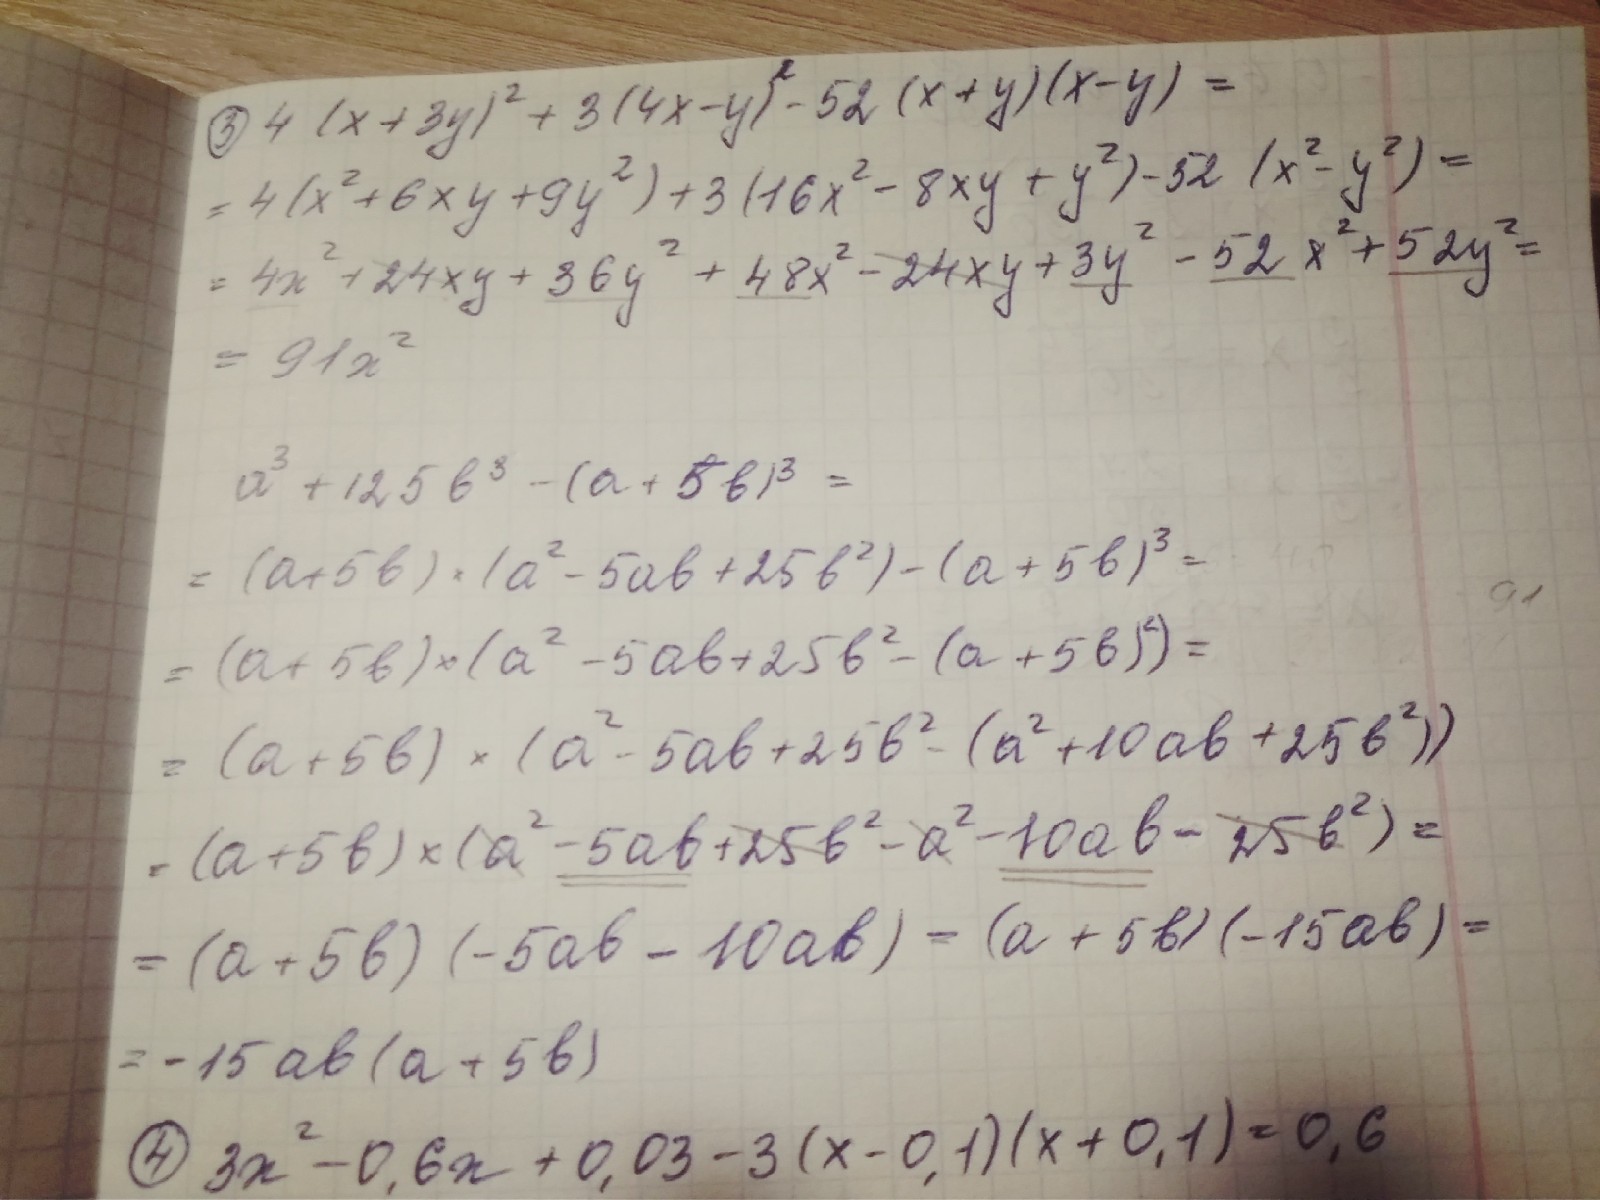 ③ 4 (x + 3y)² + 3(4x - y)² - 52 (x + y)(x - y) =
= 4(x² + 6xy + 9y²) + 3(16x² - 8xy + y²) - 52 (x² - y²) =
= 4x² + 24xy + 36y² + 48x² - 24xy + 3y² - 52x² + 52y² =
= 91x²
a³ + 125b³ - (a + 5b)³ =
= (a + 5b) · (a² - 5ab + 25b²) - (a + 5b)³ =
91
= (a + 5b) × (a² - 5ab + 25b² - (a + 5b)²) =
= (a + 5b) × (a² - 5ab + 25b² - (a² + 10ab + 25b²))
= (a + 5b) × (a² - 5ab + 25b² - a² - 10ab - 25b²) =
= (a + 5b) (-5ab - 10ab) = (a + 5b) (-15ab) =
= -15ab (a + 5b)
④ 3x² - 0,6x + 0,03 - 3(x - 0,1)(x + 0,1) = 0,6